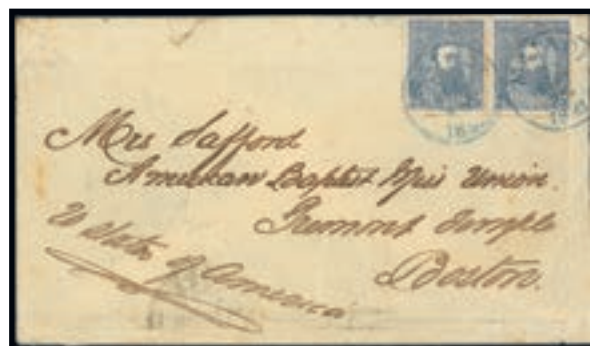 Mrs Safford
American Baptist Mis Union.
Tremont Temple
Boston.
U States of America